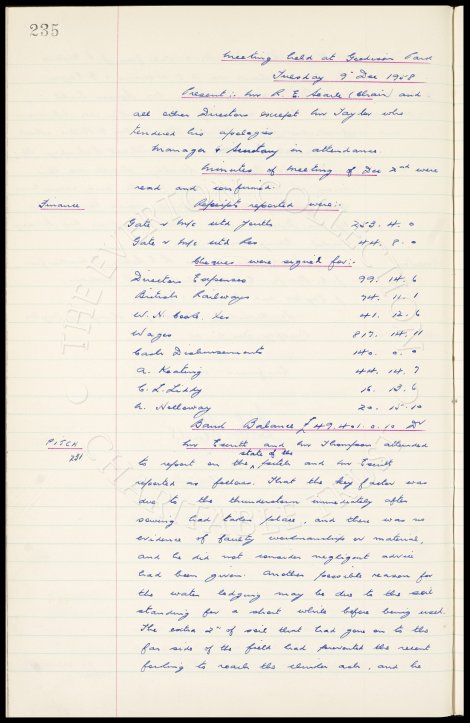 235
Meeting held at Goodison Park
Tuesday 9th Dec 1958
Present:- Mr R. E. Searle (Chair) and
all other Directors except Mr Taylor who
tendered his apologies
Manager & Secretary in attendance.
Minutes of Meeting of Dec 2nd were
read and confirmed.
Finance Receipts reported were:-
Gate v M/c Utd Youths 253. 4. 0
Gate v M/c Utd Res 44. 8. 0
Cheques were signed for:-
Directors Expenses 99. 14. 6
British Railways 74. 11. 1
W. H. 41. 12. 6
Wages 817. 14. 11
Cash Disbursements 140. 0. 0
A. Keating 44. 14. 7
C. L. Liddy 16. 13. 6
A. Holloway 20. 15. 10
Bank Balance £49,401. 0. 10 Dr
PITCH Mr Escritt and Mr Thompson attended
231 to report on the state of the pitch and Mr Escritt
reported as follows. That the key factor was
due to the thunderstorm immediately after
sowing had taken place, and there was no
evidence of faulty workmanship or material,
and he did not consider negligent advice
had been given. Another possible reason for
the water lodging may be due to the soil
standing for a short while before being used.
The extra 2" of soil that had gone on to the
far side of the field had prevented the recent
forking to reach the clinker ash, and he
THE EVERTON COLLECTION
CHARITABLE TRUST